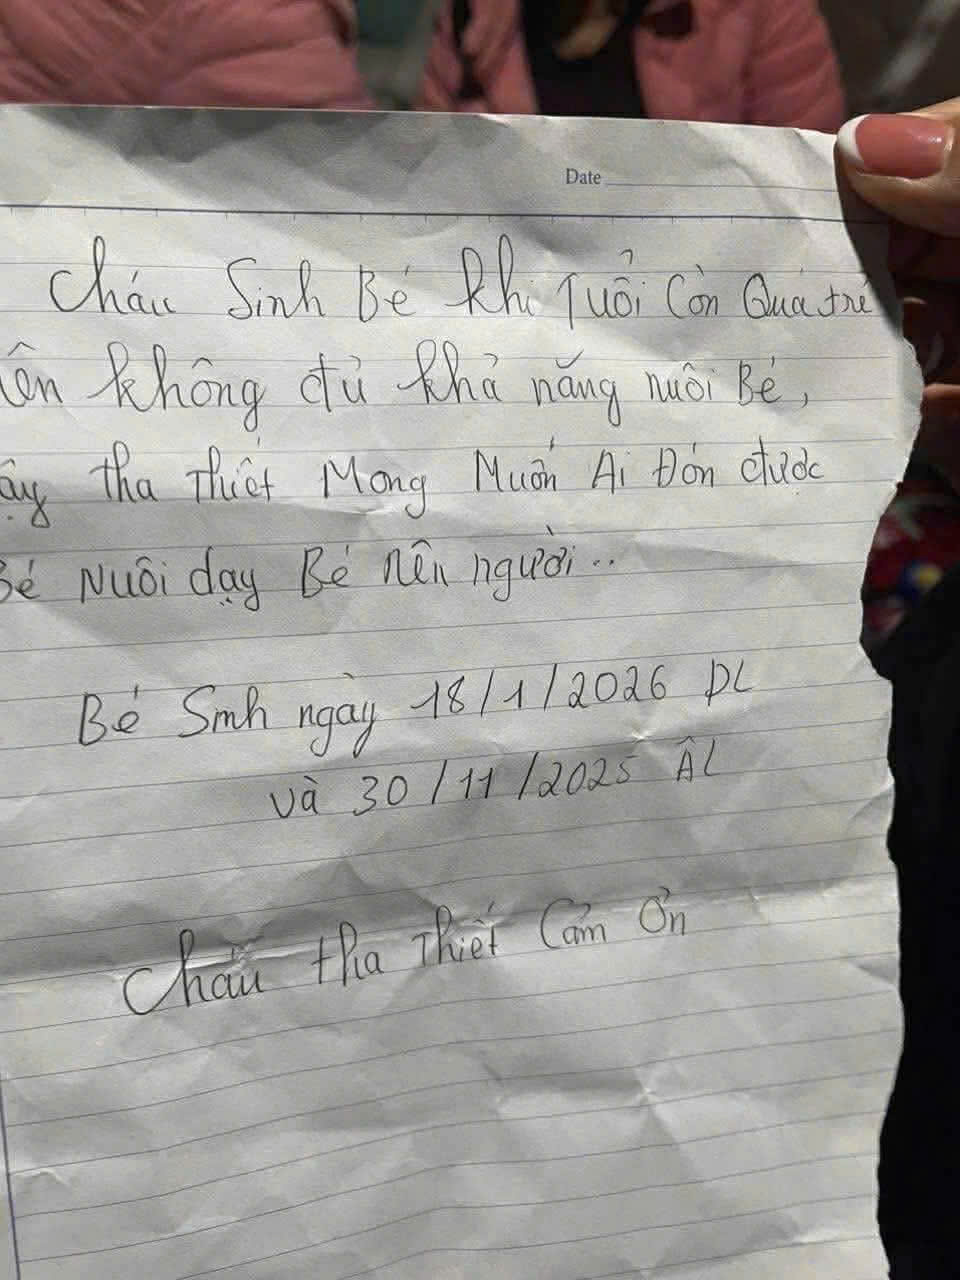 Date
Cháu Sinh Bé khi Tuổi Còn Quá trẻ
không đủ khả năng nuôi Bé,
tha thiết Mong Muốn Ai Đón được
Bé Nuôi dạy Bé nên người..
Bé Sinh ngày 18/1/2026 DL
và 30/11/2025 ÂL
Cháu tha thiết Cảm Ơn